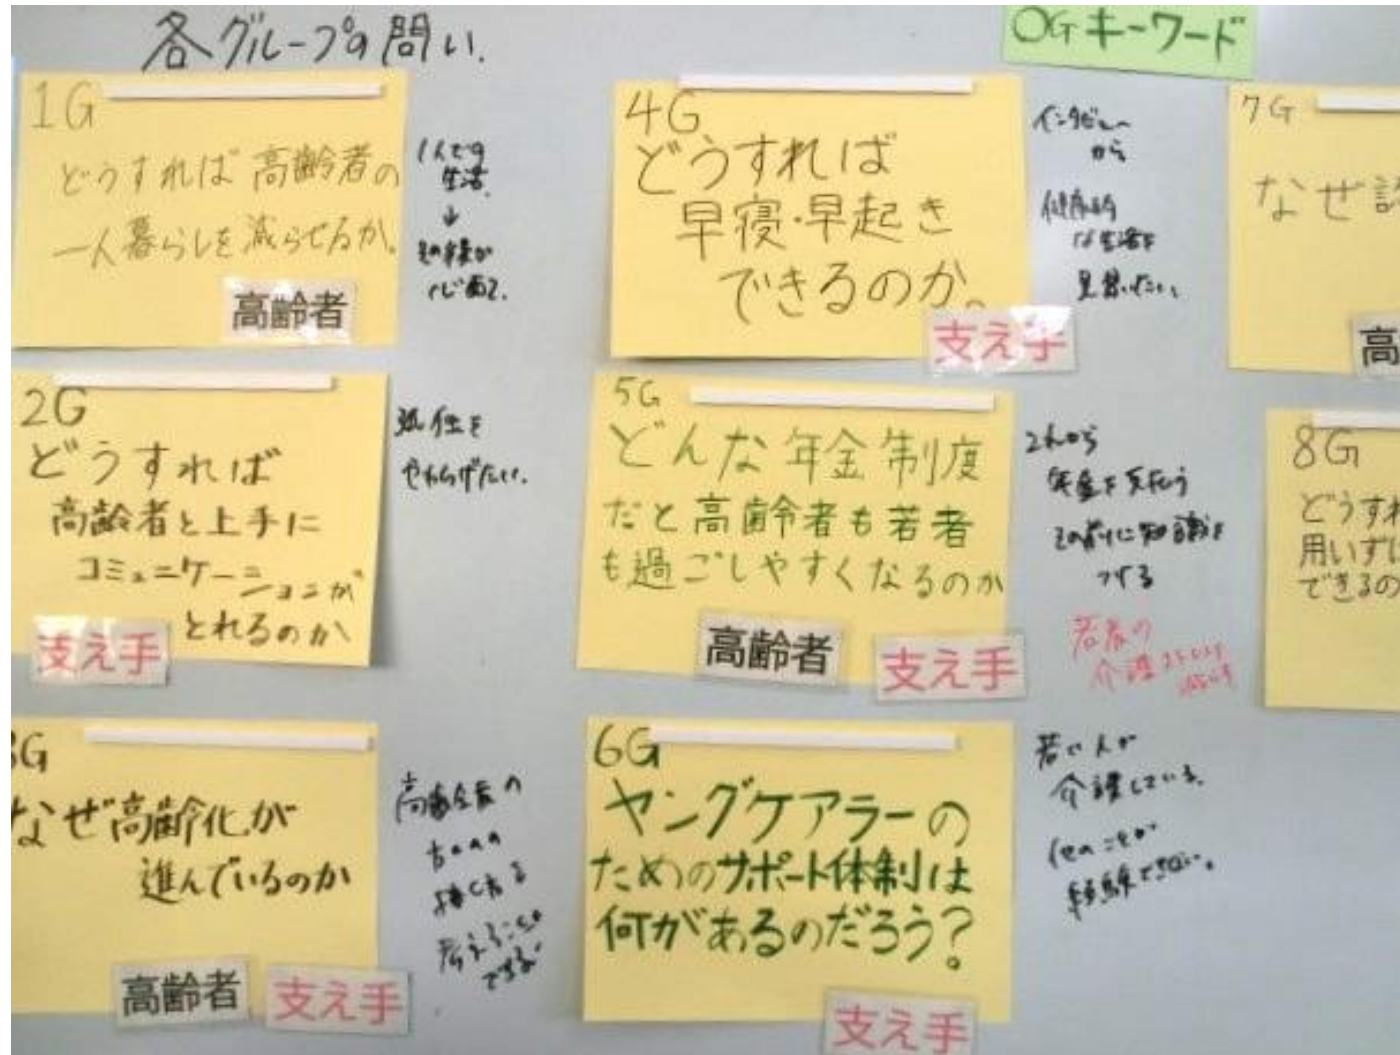 各グループの問い.
〇Gキーワード
1G
どうすれば高齢者の
一人暮らしを減らせるか。
高齢者
1人での
生活.
↓
2G
どうすれば
高齢者と上手に
コミュニケーションが
とれるのか
支え手
孤住を
やわらげたい.
3G
なぜ高齢化が
進んでいるのか
高齢者
支え手
高齢者の
考えることが
できる
4G
どうすれば
早寝・早起き
できるのか。
支え手
インタビュー
から
健康的
な生活を
見習いたい。
5G
どんな年金制度
だと高齢者も若者
も過ごしやすくなるのか
高齢者
支え手
これから
年金を支払う
その前に知識を
つける
若者の
介護
6G
ヤングケアラーの
ためのサポート体制は
何があるのだろう?
支え手
若い人が
介護している.
他のことが
経験できない。
7G
なぜ
高
8G
どうすれ
用いずに
できるの